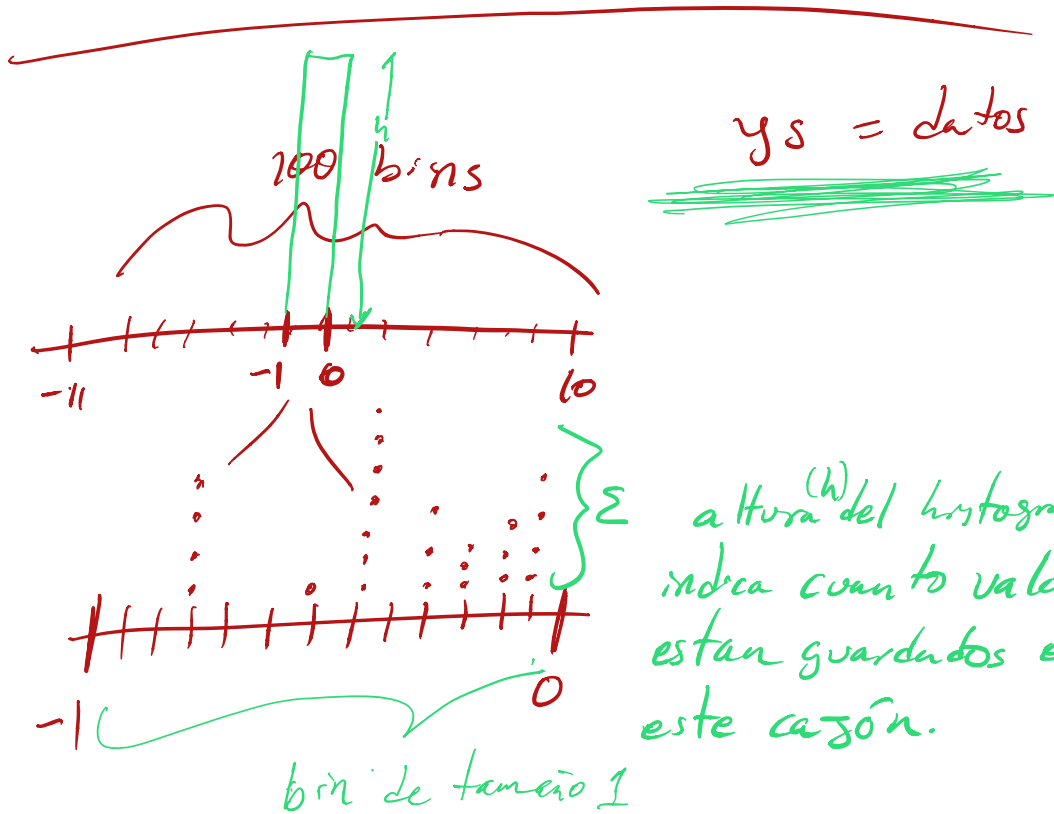 ys = datos
100 bins
h
-11 -1 0 10
Σ
altura (h) del histogra
indica cuanto valo
estan guardados e
este cajón.
-1 0
bin de tamaño 1